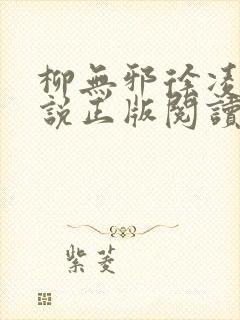 柳無邪徐凌
說正版閱讀
紫菱